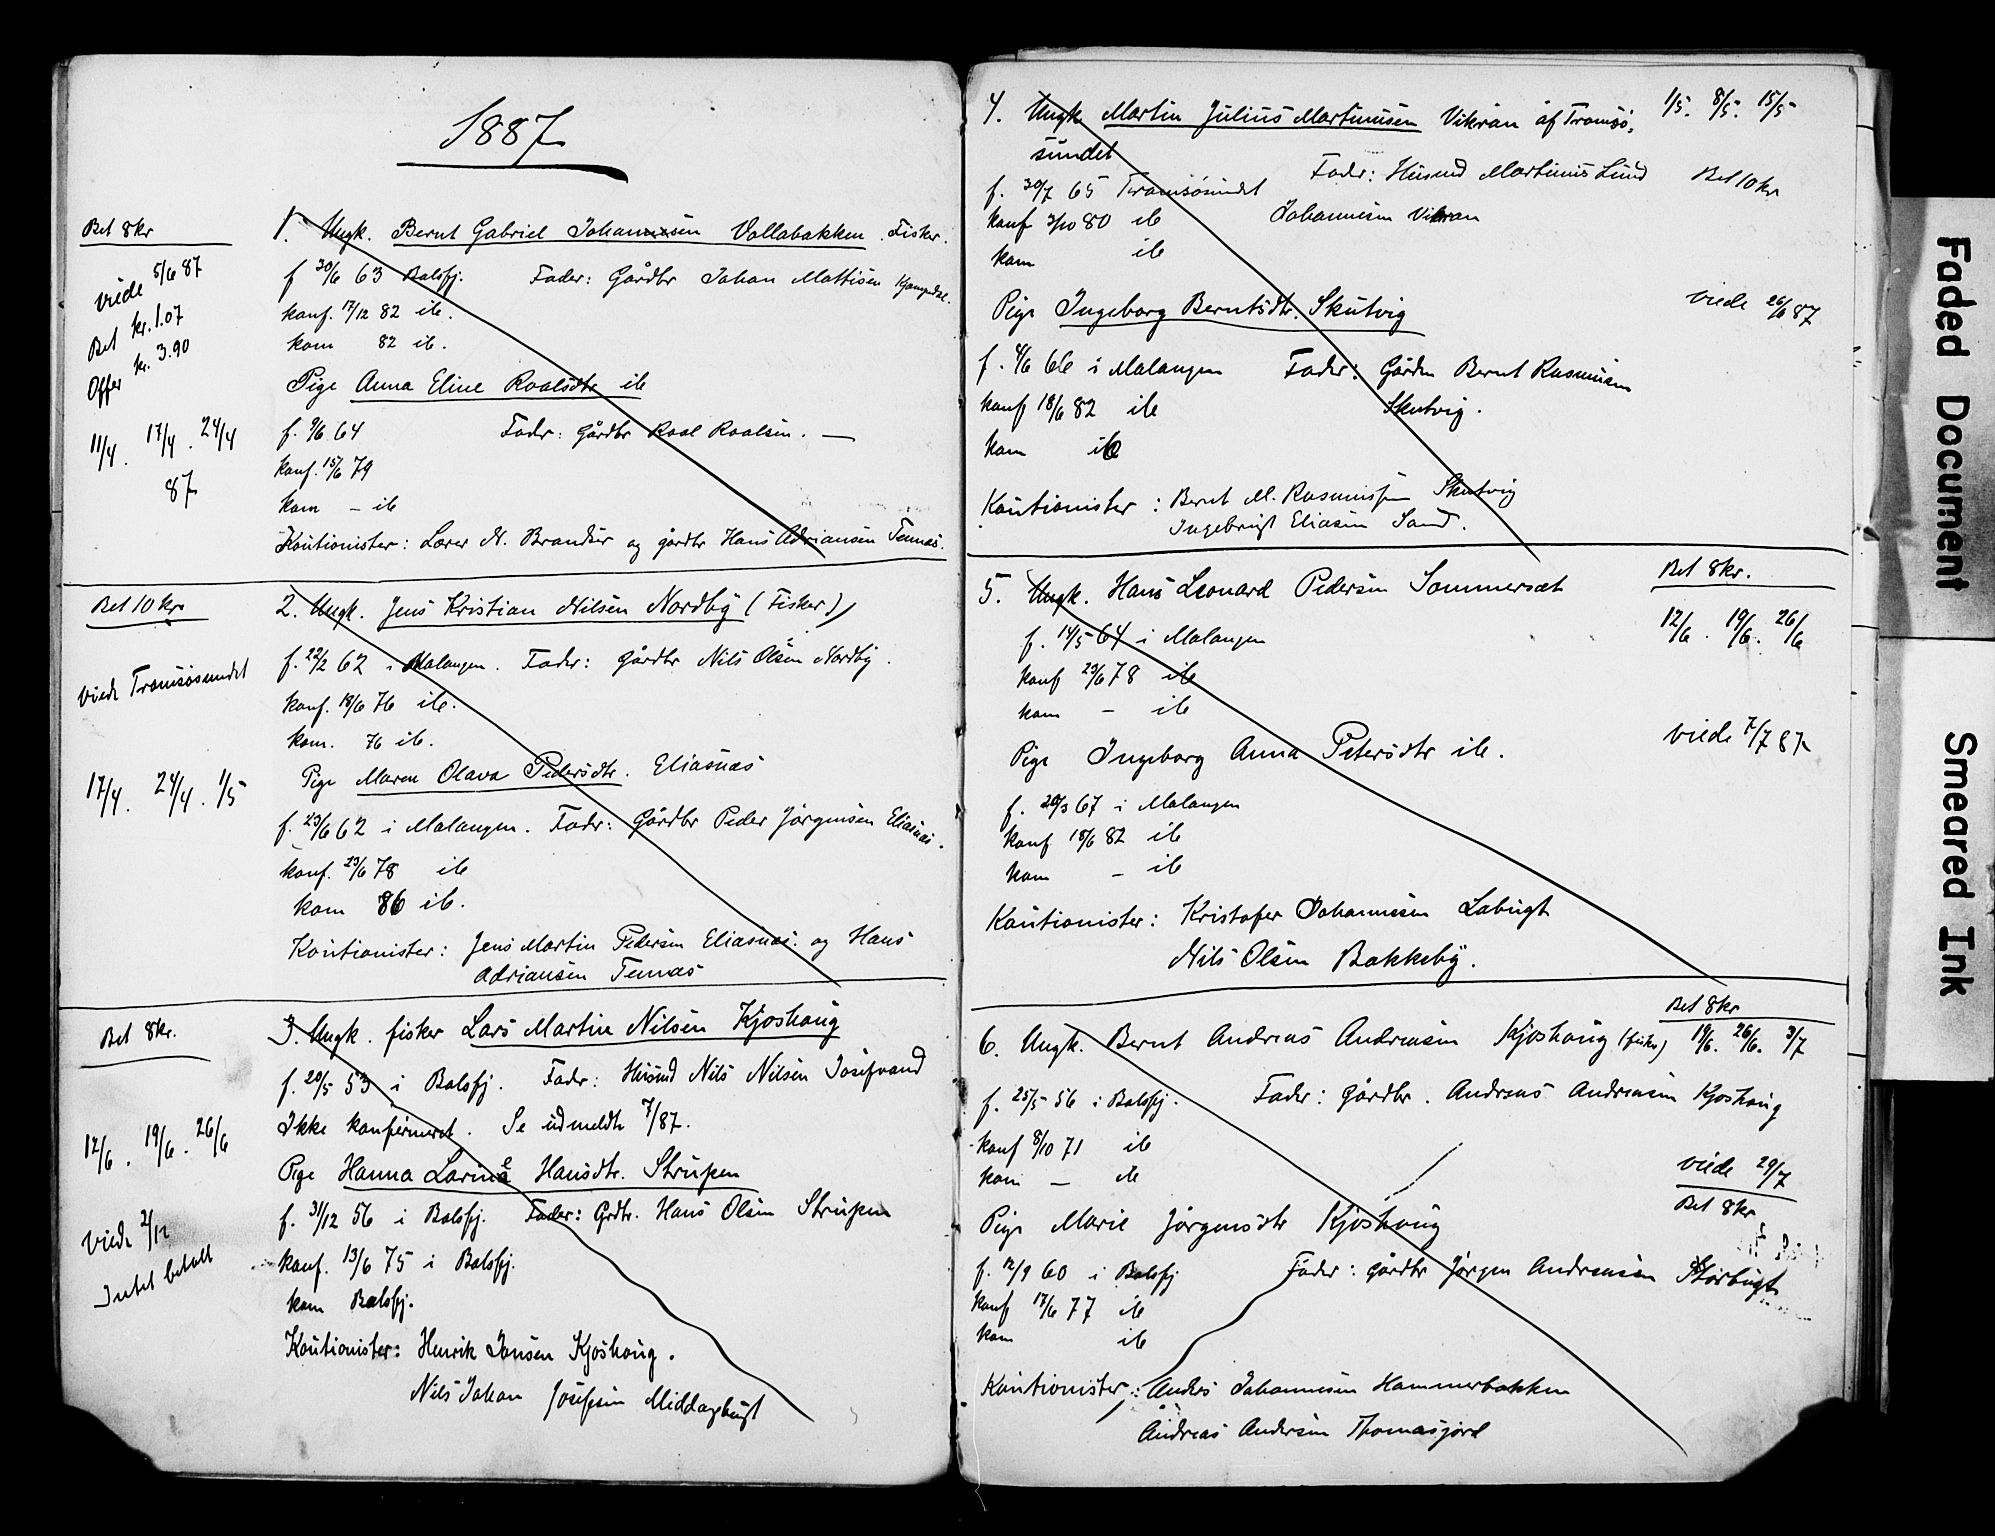 1887
Bet 8kr
viede 5/6 87
Bet kr. 1.07
Offer kr. 3.90
11/4. 17/4. 24/4
87
1. Ungk. Bernt Gabriel Johannesen Vollabakken. Fisker.
f 30/6 63 Balsfj. Fader: Gårdbr Johan Mattisen
konf. 17/12 82 ib.
kom 82 ib.
Pige Anna Eline Roalsdtr ib
f. 9/6 64 Fader: Gårdbr Roal Roalsen. —
konf. 15/6 79
kom – ib
Kautionister: Lærer N. Brandser og gårdbr Hans Adriansen Tennæs.
Bet 10 kr
viede Tromsösundet
17/4. 24/4. 1/5
2. Ungk. Jens Kristian Nilsen Nordby (Fisker)
f. 22/2 62 i Malangen. Fader: Gårdbr Nils Olsen Nordby.
konf. 18/6 76 ib.
kom. 76 ib.
Pige Maren Olava Pedersdtr. Eliasnæs
f. 23/6 62 i Malangen. Fader: Gårdbr Peder Jørgensen Eliasnæs.
konf. 23/6 78 ib
kom 86 ib.
Kautionister: Jens Martin Pedersen Eliasnæs. og Hans
Adriansen Tennæs
Bet 8kr.
12/6. 19/6. 26/6
Viede 2/12
Intet betalt
3. Ungk. fisker Lars Martin Nilsen Kjoshaug
f. 20/5 53 i Balsfj. Fader: Husmd Nils Nilsen Josefvand
Ikke konfirmeret. Se udmeldte 7/87.
Pige Hanna Larine Hansdtr. Strupen
f. 31/12 56 i Balsfj. Fader: Grdbr. Hans Olsen Strupen
konf. 13/6 75 i Balsfj.
kom Balsfj.
Kautionister: Henrik Jonsen Kjoshaug.
Nils Johan Josefsen Middagsbugt
4. Ungk. Martin Julius Martinusen Vikran af Tromsö-
sundet
1/5. 8/5. 15/5
f. 30/7 65 Tromsösundet Fader: Husmd Martinus Lund
Bet 10 kr
konf 3/10 80 ib Johannesen Vikran
kom ib
Pige Ingeborg Berntsdtr. Skutvig
viede 26/6 87
f. 4/6 66 i Malangen Fader: Gårdm Bernt Rasmussen
konf 18/6 82 ib Skutvig.
kom ib
Kautionister: Bernt M. Rasmussen Skutvig
Ingebrigt Eliasen Sand.
5. Ungk. Hans Leonard Pedersen Sommersæt
Bet 8kr.
12/6. 19/6. 26/6
f. 14/5 64 i Malangen
konf 23/6 78 ib
kom – ib
Pige Ingeborg Anna Petersdtr ib.
viede 7/7 87
f. 20/3 67 i Malangen
konf 18/6 82 ib
kom – ib
Kautionister: Kristofer Johannesen Labugt
Nils Olsen Bakkeby.
Bet 8kr
6. Ungk. Bernt Andreas Andreasen Kjoshaug (fisker) 19/6. 26/6. 3/7
f. 25/5 56 i Balsfj. Fader: Gårdbr. Andreas Andreasen Kjoshaug
konf 8/10 71 ib
kom – ib
viede 29/7
Bet 8kr
Pige Marie Jørgensdtr Kjoshaug
f. 12/9 60 i Balsfj Fader: Gårdbr Jørgen Andreasen Storbugt
konf 17/6 77 ib
kom ib
Kautionister: Anders Johannesen Hammerbakken
Andreas Andersen Thomasjord
Faded Document
Smeared Ink